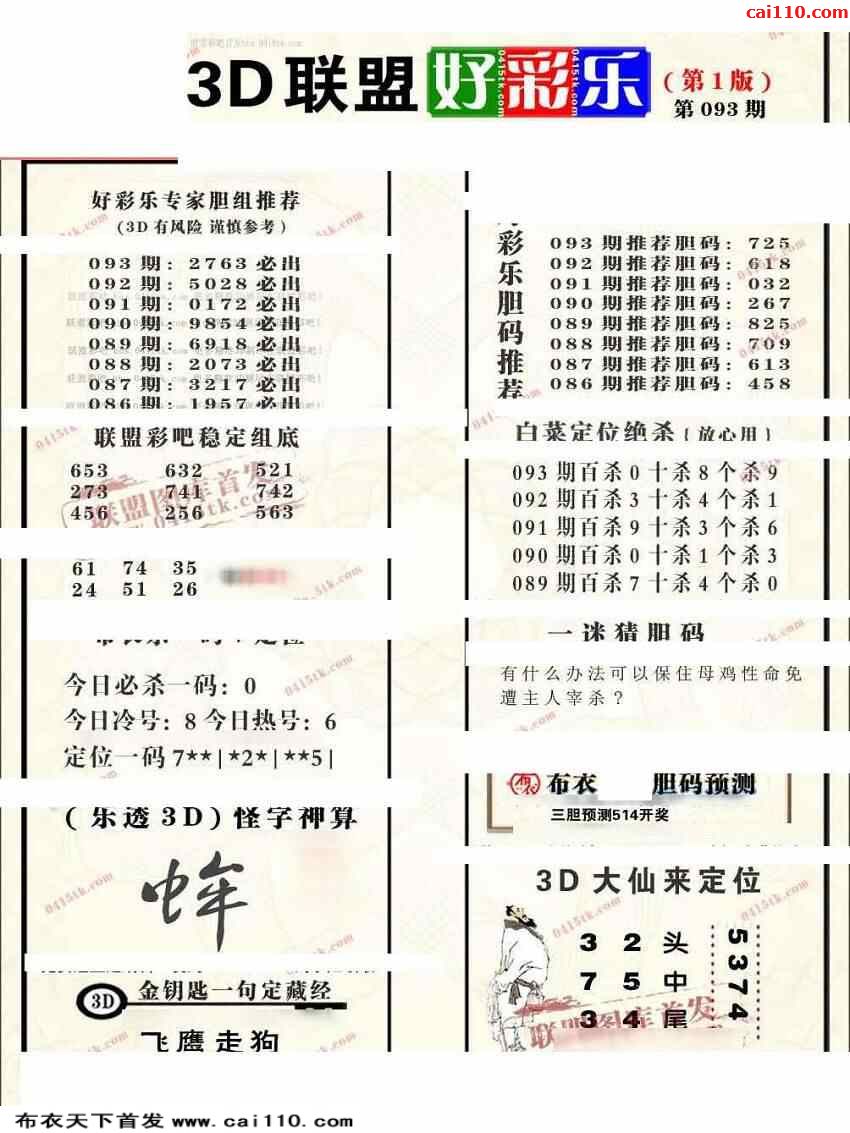 cai110.com
3D联盟好彩乐(第1版)
第093期
好彩乐专家胆组推荐
(3D有风险 谨慎参考)
093期: 2763必出
092期: 5028必出
091期: 0172必出
090期: 9854必出
089期: 6918必出
088期: 2073必出
087期: 3217必出
086期: 1957必出
联盟彩吧稳定组底
653 632 521
273 741 742
456 256 563
联盟图库首发
61 74 35
24 51 26
今日必杀一码: 0
今日冷号: 8 今日热号: 6
定位一码 7**|*2*|**5|
(乐透3D)怪字神算
蛑
3D 金钥匙一句定藏经
飞鹰走狗
彩乐胆码推荐
093期推荐胆码: 725
092期推荐胆码: 618
091期推荐胆码: 032
090期推荐胆码: 267
089期推荐胆码: 825
088期推荐胆码: 709
087期推荐胆码: 613
086期推荐胆码: 458
白菜定位绝杀(放心用)
093期百杀0十杀8个杀9
092期百杀3十杀4个杀1
091期百杀9十杀3个杀6
090期百杀0十杀1个杀3
089期百杀7十杀4个杀0
一迷猜胆码
有什么办法可以保住母鸡性命免
遭主人宰杀?
布衣 布衣 胆码预测
三胆预测514开奖
3D大仙来定位
3 2 头
7 5 中
3 4 尾
5374
联盟图库首发
布衣天下首发 www.cai110.com